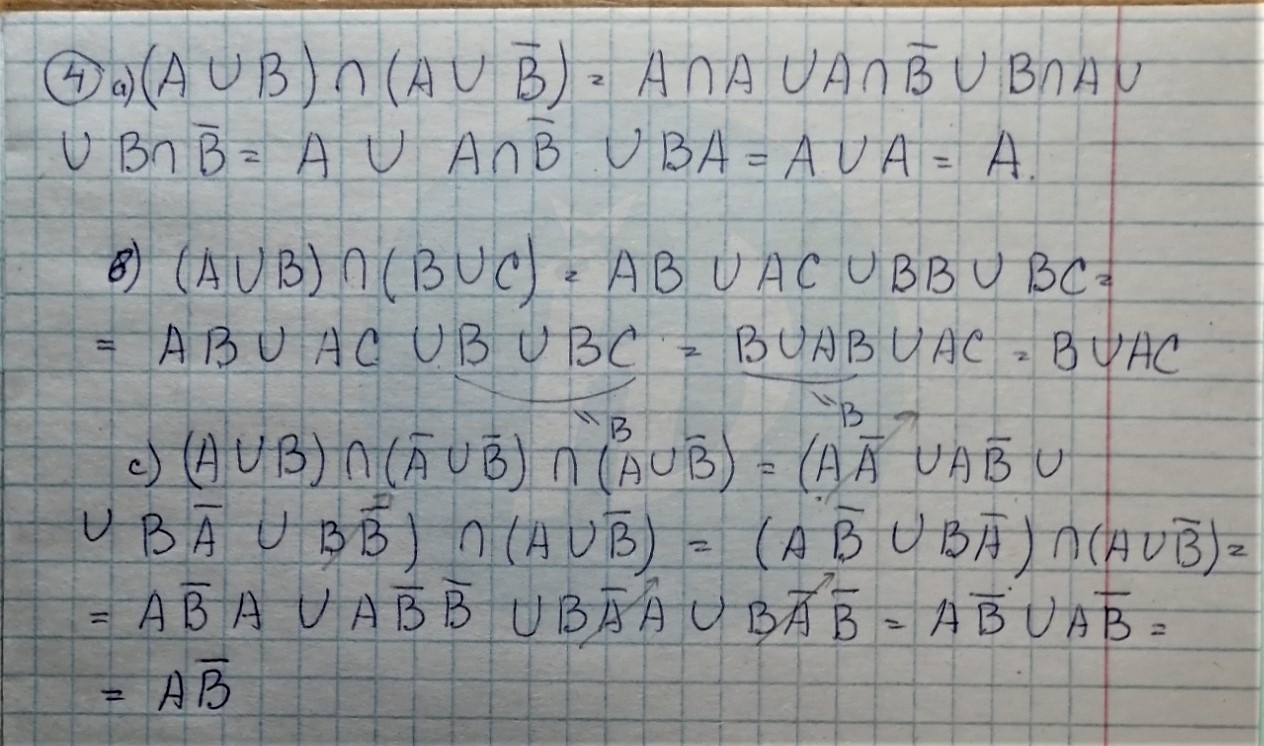 ④ a) (A ∪ B) ∩ (A ∪ B̅) = A∩A ∪ A∩B̅ ∪ B∩A ∪
∪ B∩B̅ = A ∪ A∩B̅ ∪ BA = A ∪ A = A.
в) (A∪B) ∩ (B∪C) = AB ∪ AC ∪ BB ∪ BC =
= AB ∪ AC ∪ B ∪ BC = B∪AB ∪ AC = B∪AC
= B = B
c) (A∪B) ∩ (A̅∪B̅) ∩ (A∪B̅) = (AA̅ ∪ AB̅ ∪
∪ BA̅ ∪ BB̅) ∩ (A∪B̅) = (AB̅ ∪ BA̅) ∩ (A∪B̅) =
= AB̅A ∪ AB̅B̅ ∪ BA̅A ∪ BA̅B̅ = AB̅ ∪ AB̅ =
= AB̅